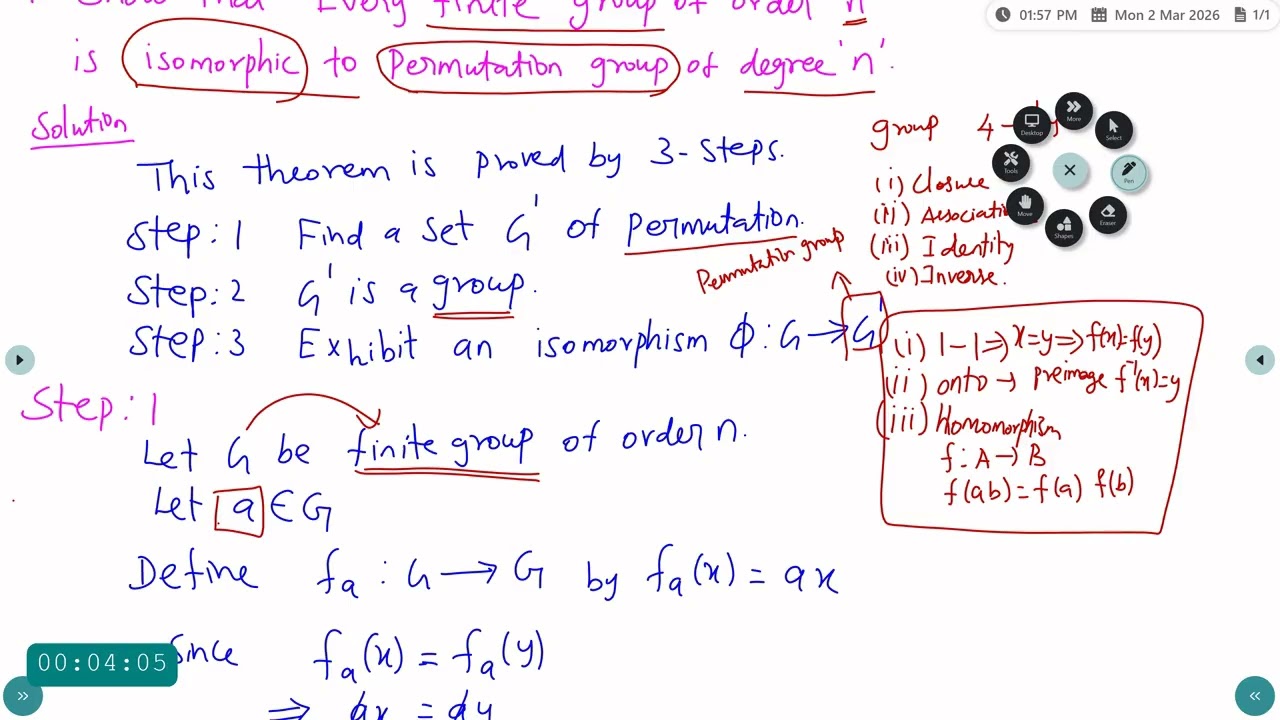 Show that Every finite group of order n
is isomorphic to Permutation group of degree 'n'.
Solution
This theorem is proved by 3-Steps.
Step:1 Find a set G' of permutation.
Step:2 G' is a group.
Step:3 Exhibit an isomorphism φ: G → G'
Permutation group
group 4
(i) Closure
(ii)
(iii) Identity
(iv) Inverse.
(i) 1-1 ⇒ x=y ⇒ f(x)=f(y)
(ii) onto → preimage f⁻¹(x)=y
(iii) Homomorphism
f: A → B
f(ab) = f(a) f(b)
Step:1
Let G be finite group of order n.
Let a ∈ G
Define fₐ : G → G by fₐ(x) = ax
Since fₐ(x) = fₐ(y)
⇒ ax = ay
01:57 PM Mon 2 Mar 2026 1/1
Desktop
More
Select
Tools
Pen
Move
Shapes
Eraser
00:04:05